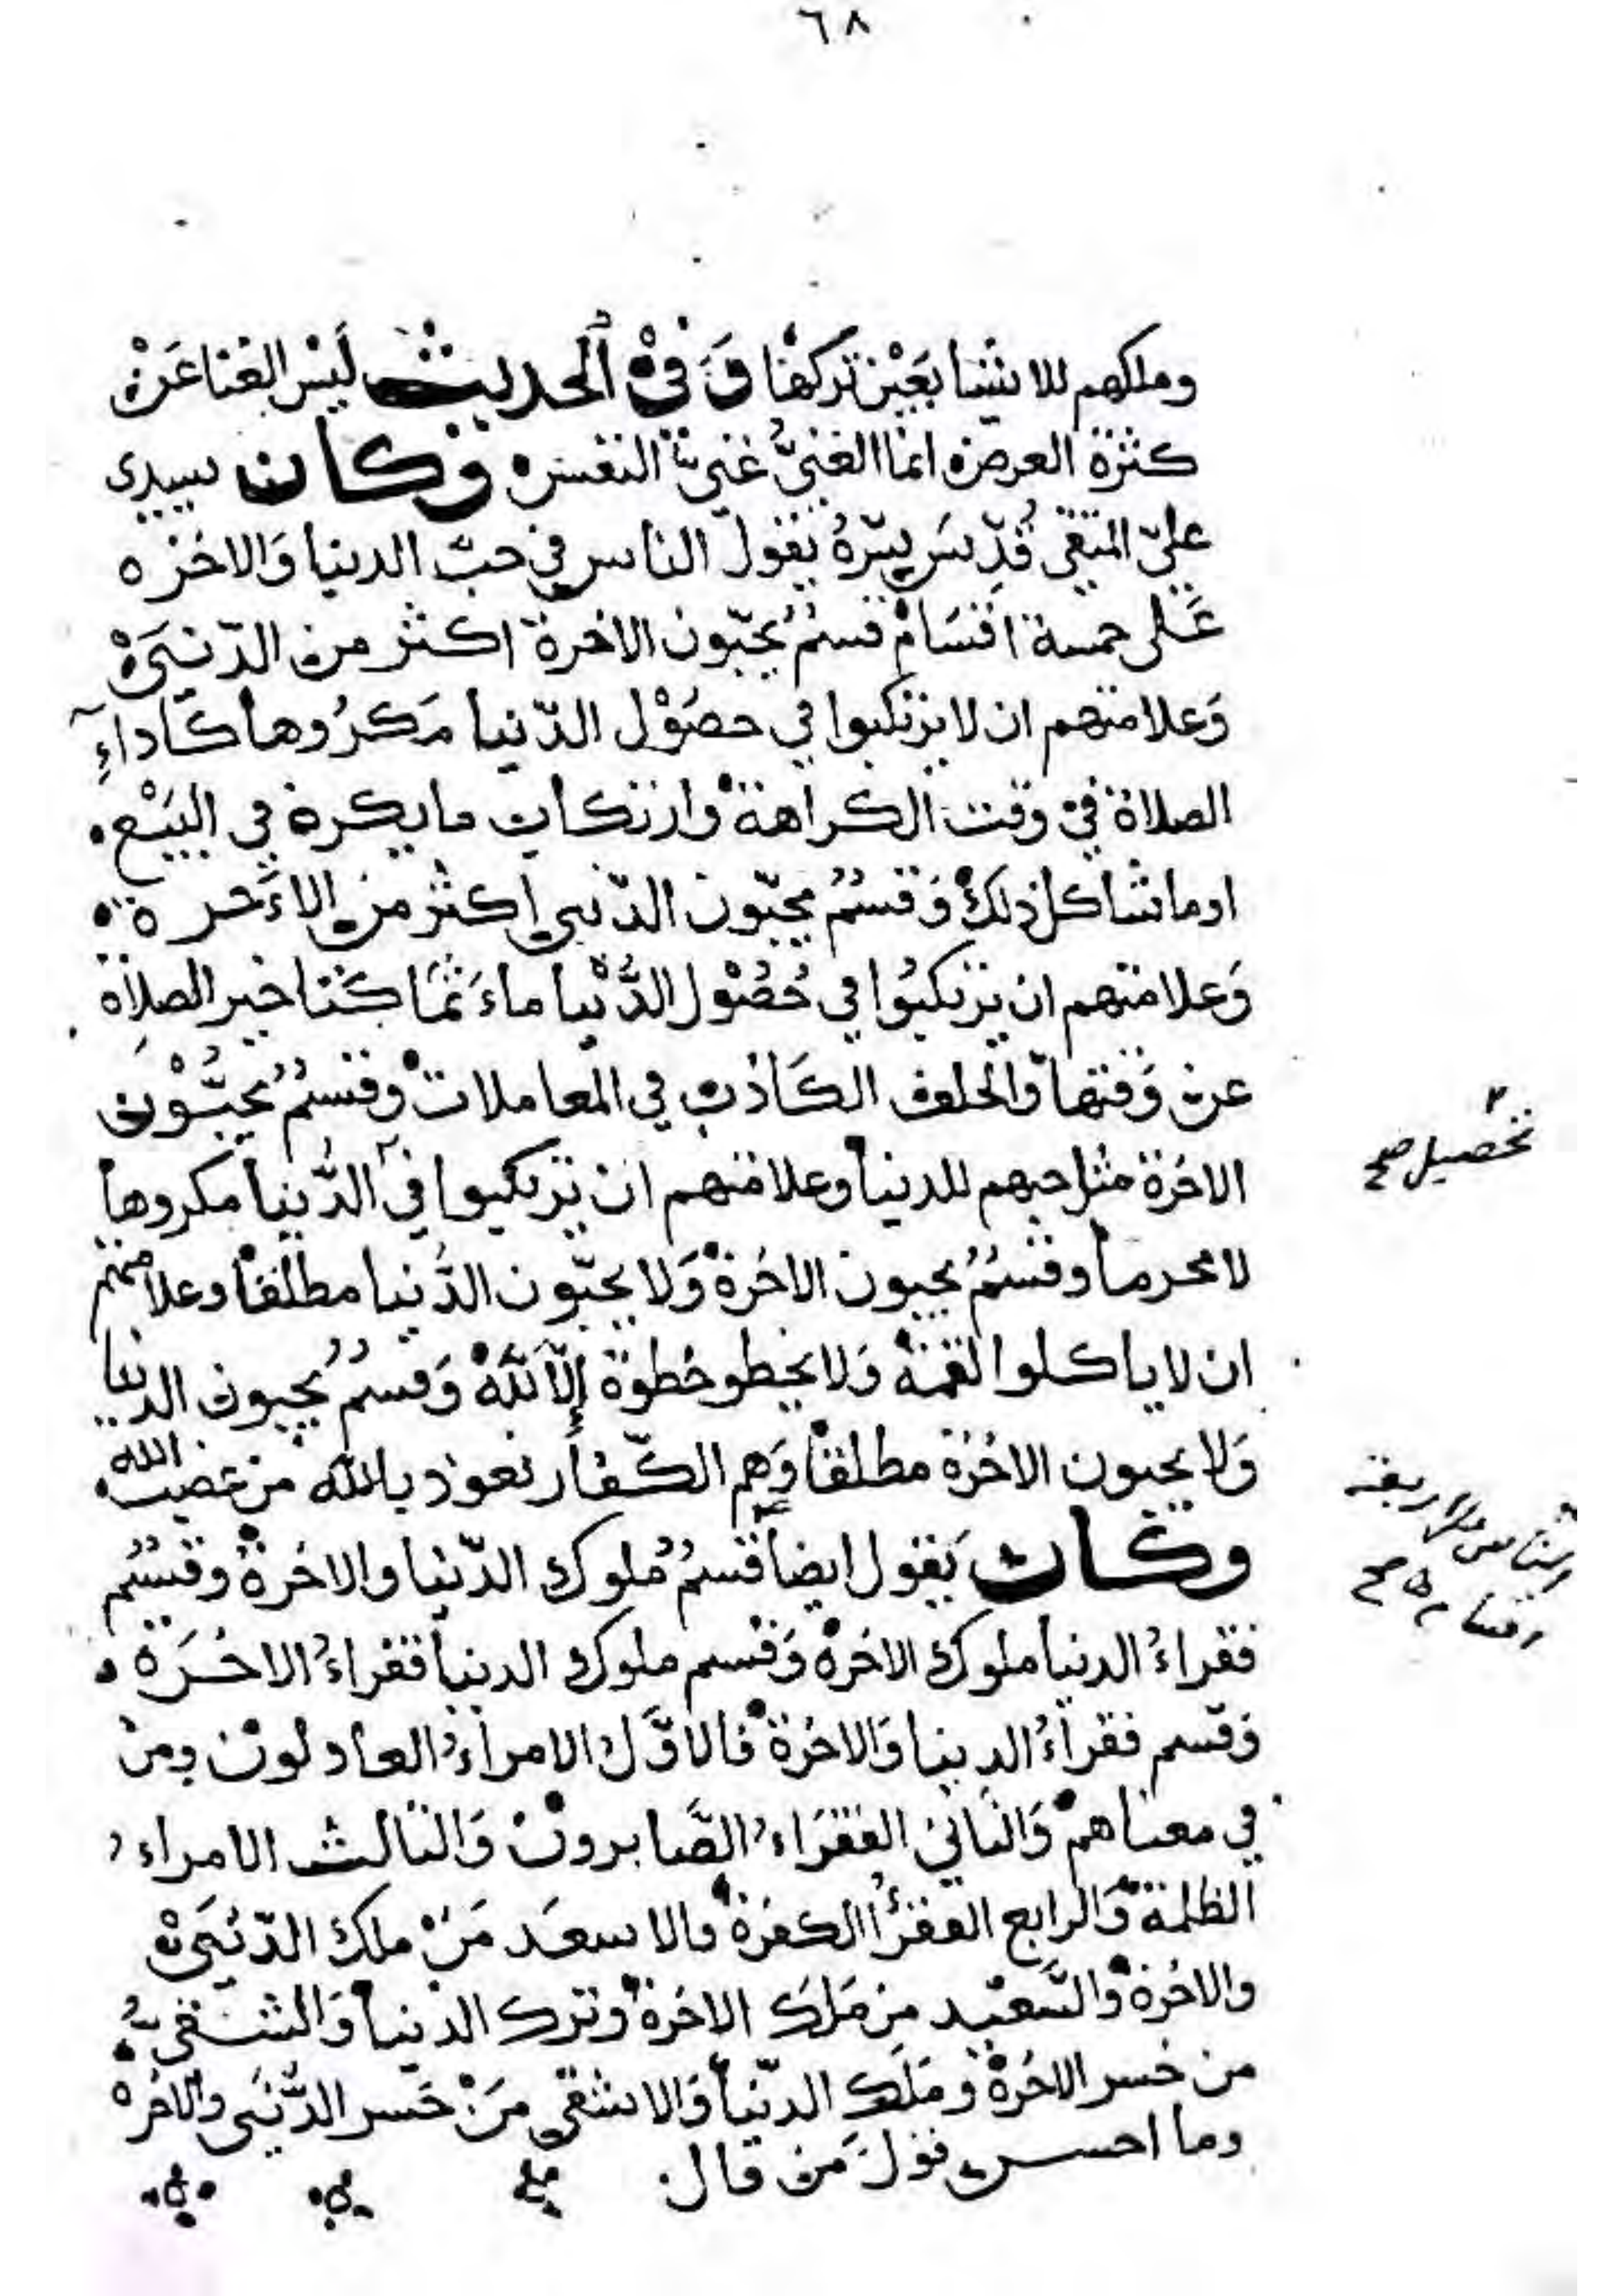 ٦٨
وملكهم للاشيا بعين تركها وَفي الحديث لَيسَ الغنا عَنْ
كثرة العرض انما الغنيُّ غنيّ النفس وكان سيدى
علىّ المتقى قُدّسَ سِرّهُ يقول الناس في حبّ الدنيا وَالاخرة
عَلى خمسة اقسَام قسمٌ يحبّون الاخرة اكثر من الدّنيَى
وَعلامتهم ان لا يرتكبوا في حصُوْل الدّنيا مَكرُوها كَاداءِ
الصلاة في وقت الكراهة وارتكاب ما يكره في البيَع
او ما شاكل ذلك وَقسمٌ يحبّون الدّنيى اكثر من الاَخرة
وَعلامتهم ان يرتكبُوا في حُصُوْل الدُّنْيا ماءَثمَا كَتاخير الصلاة
عن وَقتها وَالحلف الكَاذب في المعاملات وقسمٌ يحبُّوْن
الاخرة مثل حبهم للدنيا وعلامتهم ان يرتكبوا في الدُّنيا مكروها
لا محرما وقسمٌ يحبون الاخرة وَلا يحبّون الدُّنيا مطلقا وعلامتهم
ان لا ياكلوا لقمة وَلا يخطو خطوة إلّا لله وَقسمٌ يحبون الدنيا
وَلا يحبون الاخرة مطلقا وَهم الكفّار نعوذ بالله من غضب الله
وكان يَقول ايضا قسمٌ مُلوك الدّنيا والاخرة وقسمٌ
فقراءُ الدنيا ملوك الاخرة وَقسم ملوك الدنيا فقراءُ الاخرَة
وَقسم فقراءُ الدنيا وَالاخرة فالاوَّل الامراءُ العادلون ومن
في معناهم وَالثاني الفقرَاءُ الصَّابرون وَالثالث الامراءُ
الظلمة وَالرابع الفقرأُ الكفرة والاسعَد مَنْ ملك الدّنيَى
والاخرة وَالسَّعيد من مَلَك الاخرة وترك الدنيا وَالشقيُّ
من خسر الاخرة وَمَلَك الدّنيا وَالاشقى مَنْ خَسر الدُّنيَى والاخرة
وما احسن قول مَن قال
تحصيل صح
اقسام صح